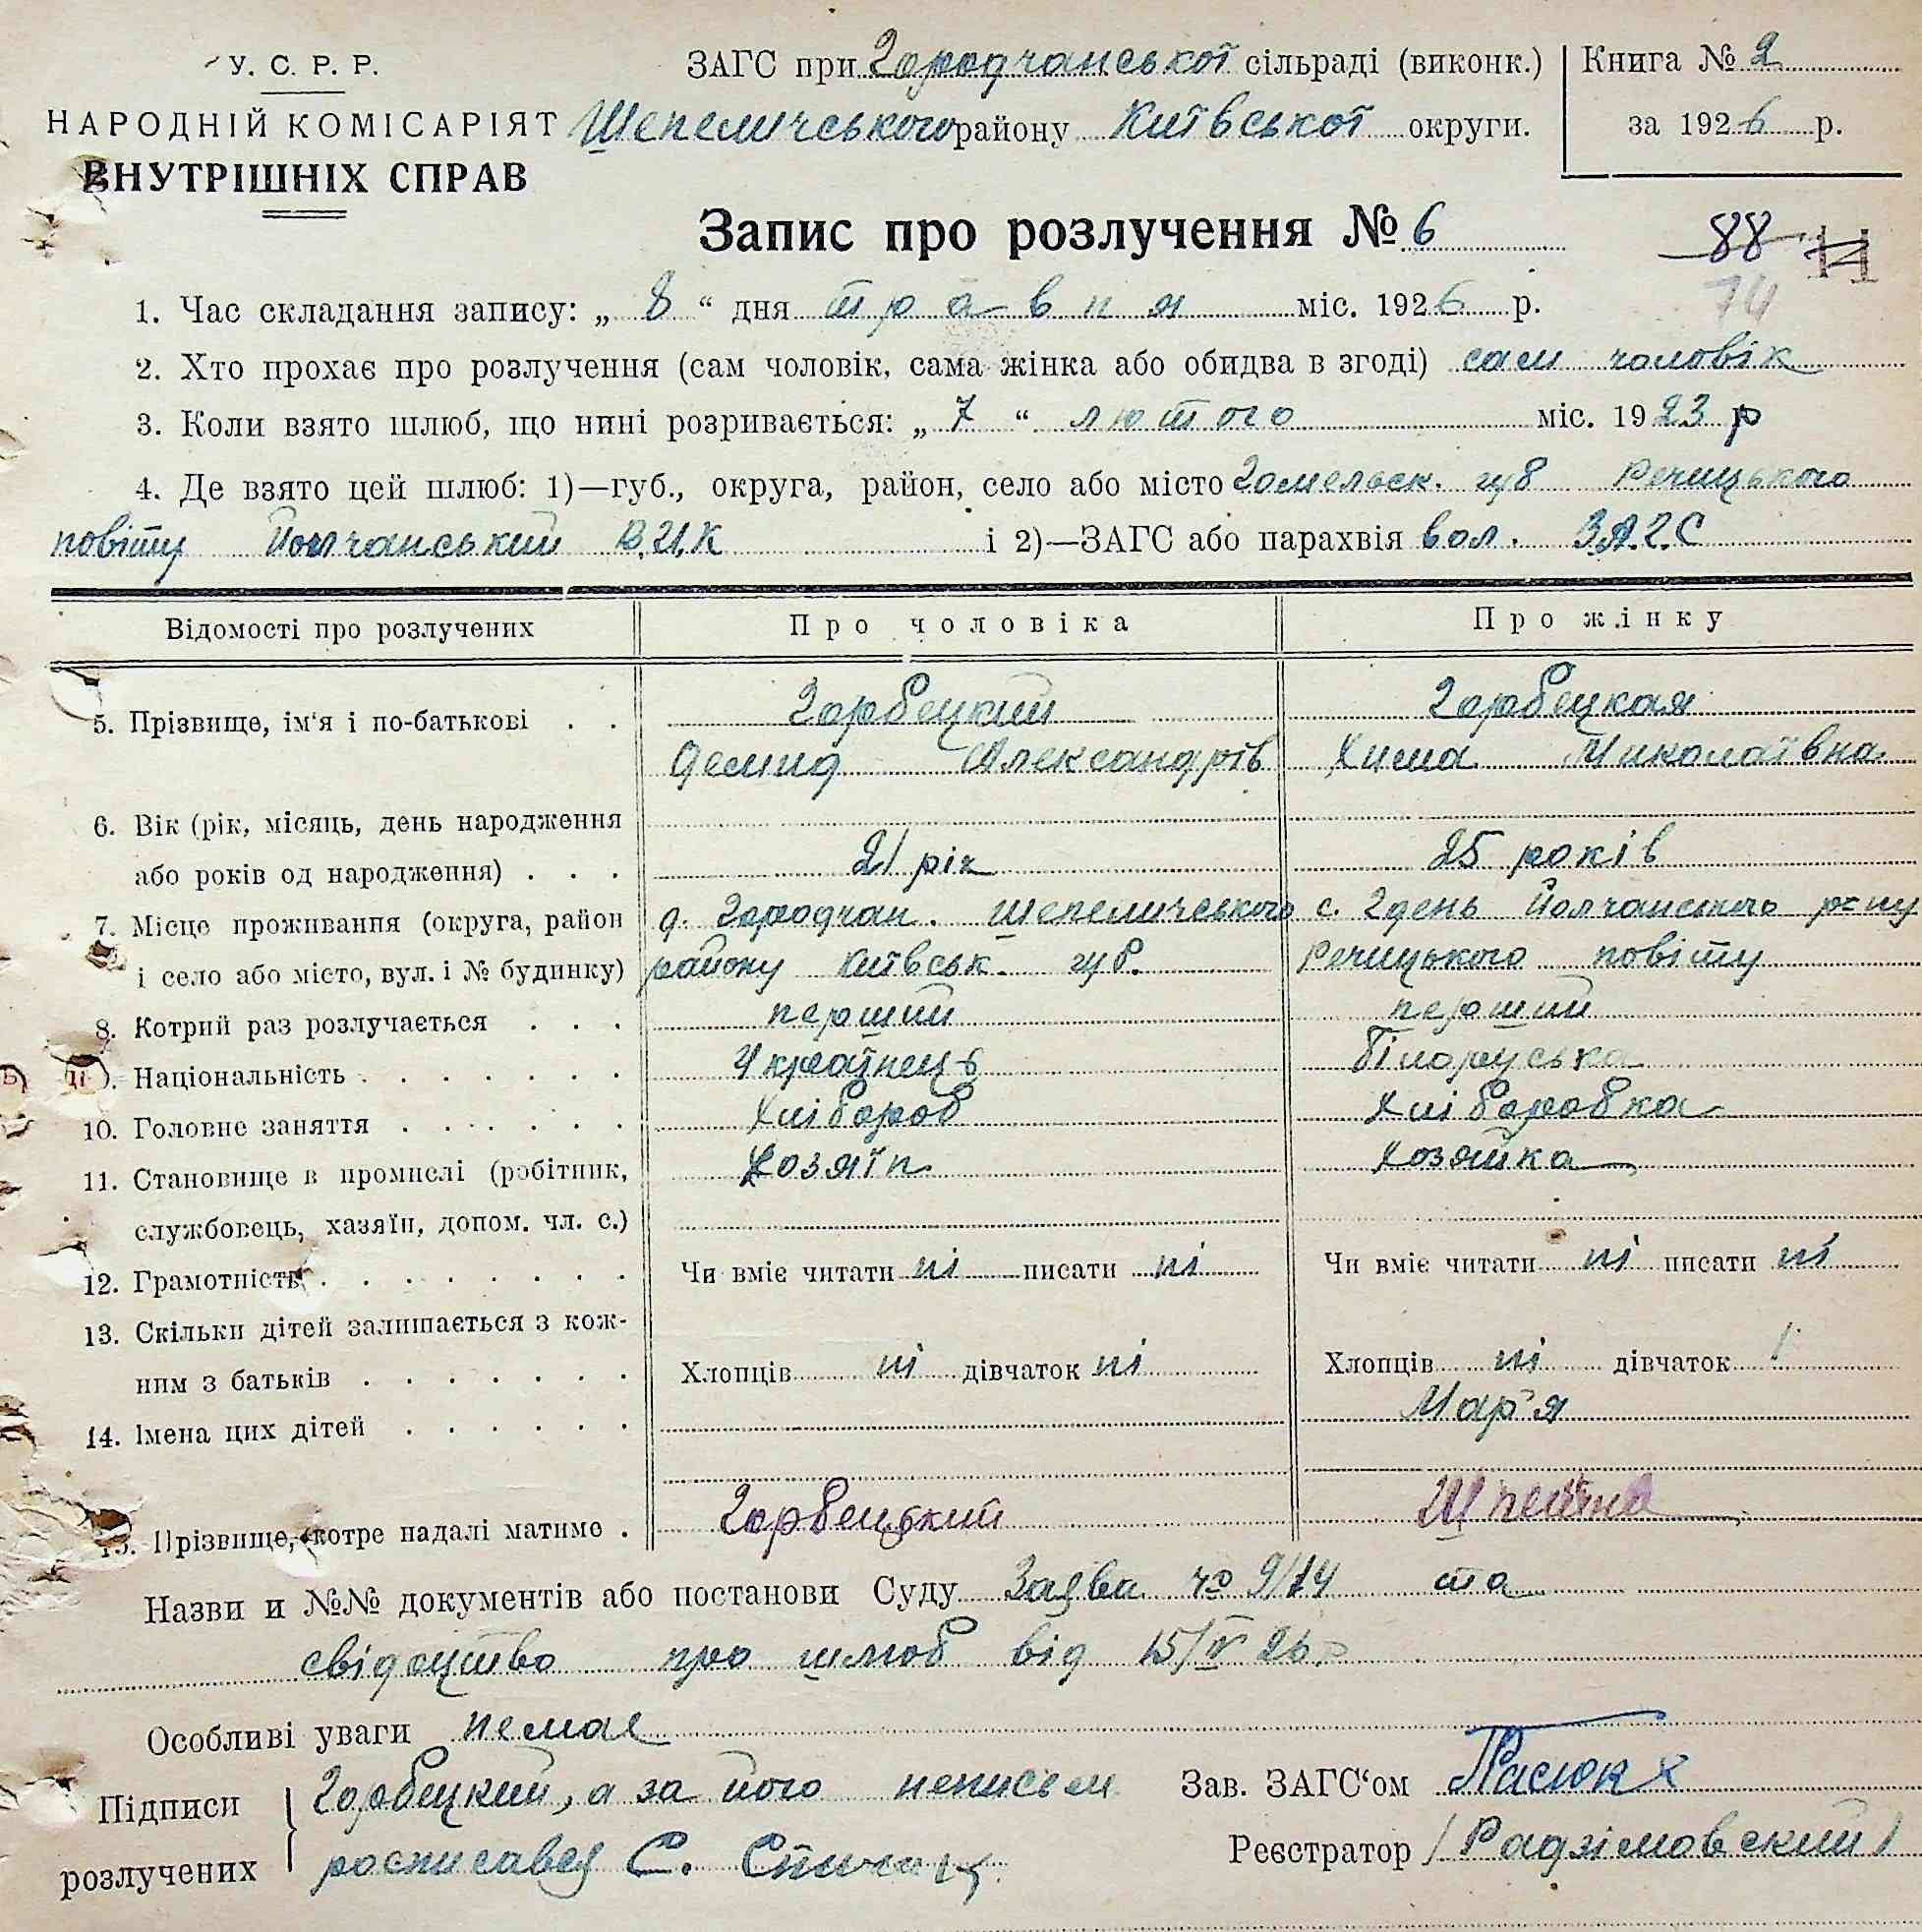 У. С. Р. Р.
НАРОДНІЙ КОМІСАРІЯТ
ВНУТРІШНІХ СПРАВ
ЗАГС при Городчанської сільраді (виконк.)
Шепеличського району Київської округи.
Книга № 2
за 1926 р.
Запис про розлучення № 6
88
74
1. Час складання запису: „ 8 “ дня травня міс. 1926 р.
2. Хто прохає про розлучення (сам чоловік, сама жінка або обидва в згоді) сам чоловік
3. Коли взято шлюб, що нині розривається: „ 7 “ лютого міс. 1923 р
4. Де взято цей шлюб: 1)—губ., округа, район, село або місто Гомельск. губ Речицького
повіту Йолчанський В.И.К і 2)—ЗАГС або парахвія вол. З.А.Г.С
Відомості про розлучених Про чоловіка Про жінку
5. Прізвище, ім‘я і по-батькові . . Горбецкий Горбецкая
Демид Александрів Хима Миколаївна
6. Вік (рік, місяць, день народження
або років од народження) . . . 21 рік 25 років
7. Місце проживання (округа, район д. Городчан. Шепеличського с. Гдень Йолчанського р-ну
і село або місто, вул. і № будинку) району Київськ. губ. Речицького повіту
8. Котрий раз розлучається . . . перший перший
9. Національність . . . . . . . Українець Білоруська
10. Головне заняття . . . . . . Хлібороб Хліборобка
11. Становище в промислі (робітник, Хозяїн Хозяйка
службовець, хазяїн, допом. чл. с.)
12. Грамотність . . . . . . . . Чи вміє читати ні писати ні Чи вміє читати ні писати ні
13. Скільки дітей залишається з кож-
ним з батьків . . . . . . . Хлопців ні дівчаток ні Хлопців ні дівчаток 1
14. Імена цих дітей . . . . . . Мар'я
15. Прізвище, котре надалі матиме . Горбецький
Назви и №№ документів або постанови Суду Заява № 9/14 та
свідоцтво про шлюб від 15/IV 26р
Особливі уваги немає
Підписи розлучених
Горбецкий, а за його неписьм
росписавсь С.
Зав. ЗАГС‘ом Пасюк
Реєстратор /Радзімовский/